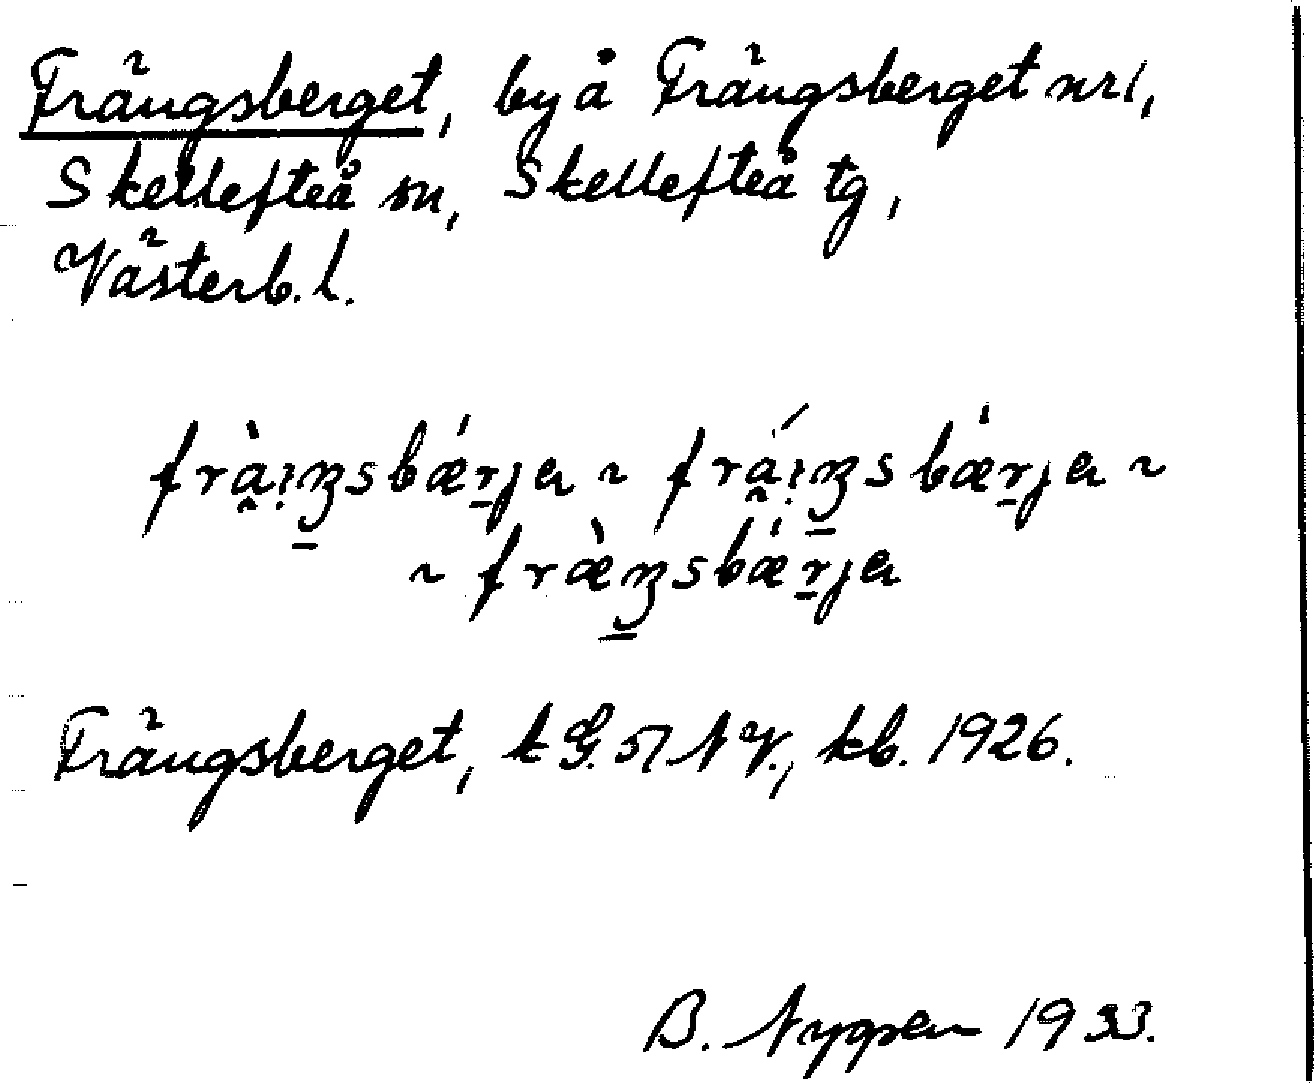 Frängsberget, by å Frängsberget nr 1,
Skellefteå sn, Skellefteå tg,
Västerb. l.
frà̭i̭ŋsbǽr̠ja ~ frá̭i̭ŋsbǽr̠ja ~
~ fræ̀ŋsbǽr̠ja
Frängsberget, k G. 51 N V., kb. 1926.
B. Nygren 1933.